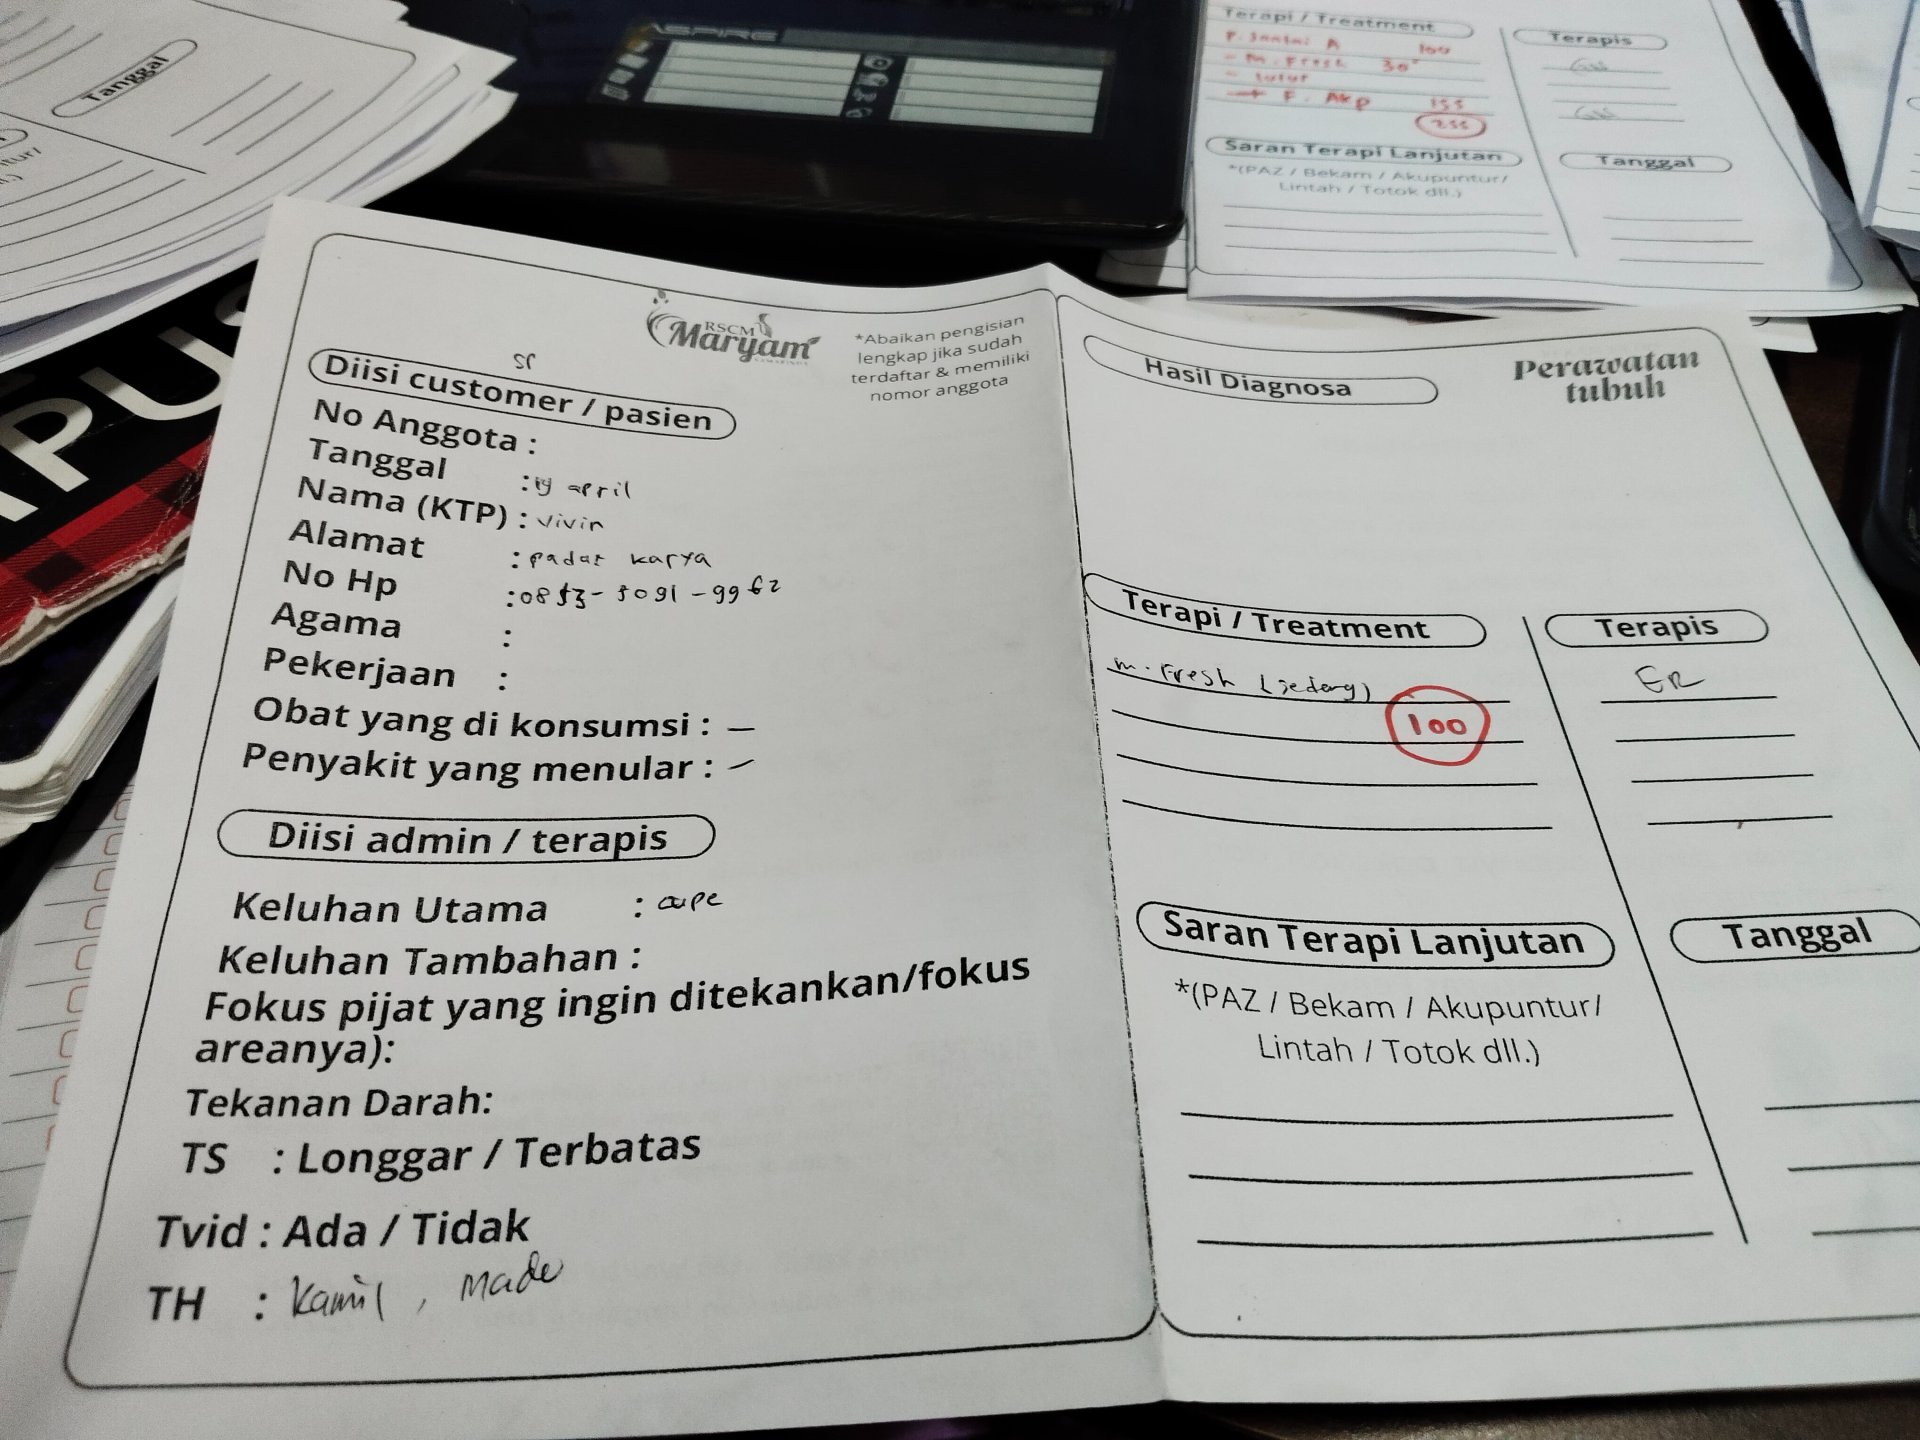 Tanggal
ASPIRE
Terapi / Treatment
P. Santai A 100
- M. Fresh 30"
- lulur
→ F. Akp 155
255
Terapis
Saran Terapi Lanjutan
*(PAZ / Bekam / Akupuntur/
Lintah / Totok dll.)
Tanggal
RSCM
Maryam
*Abaikan pengisian
lengkap jika sudah
terdaftar & memiliki
nomor anggota
Diisi customer / pasien
No Anggota :
Tanggal : 19 april
Nama (KTP) : vivin
Alamat : padat karya
No Hp : 0853-5091-9962
Agama :
Pekerjaan :
Obat yang di konsumsi : –
Penyakit yang menular : –
Diisi admin / terapis
Keluhan Utama : cape
Keluhan Tambahan :
Fokus pijat yang ingin ditekankan/fokus
areanya):
Tekanan Darah:
TS : Longgar / Terbatas
Tvid : Ada / Tidak
TH : Kamil, Made
Hasil Diagnosa
Perawatan
tubuh
Terapi / Treatment
m. Fresh (sedang)
100
Terapis
ER
Saran Terapi Lanjutan
*(PAZ / Bekam / Akupuntur/
Lintah / Totok dll.)
Tanggal